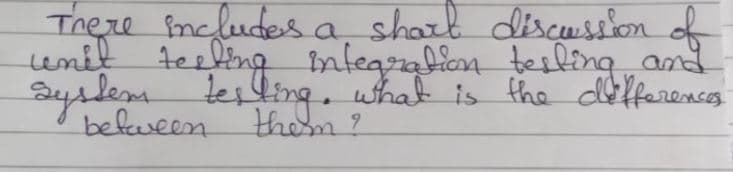 There includes a short discussion of
unit testing integration testing and
system testing. What is the differences
between them?